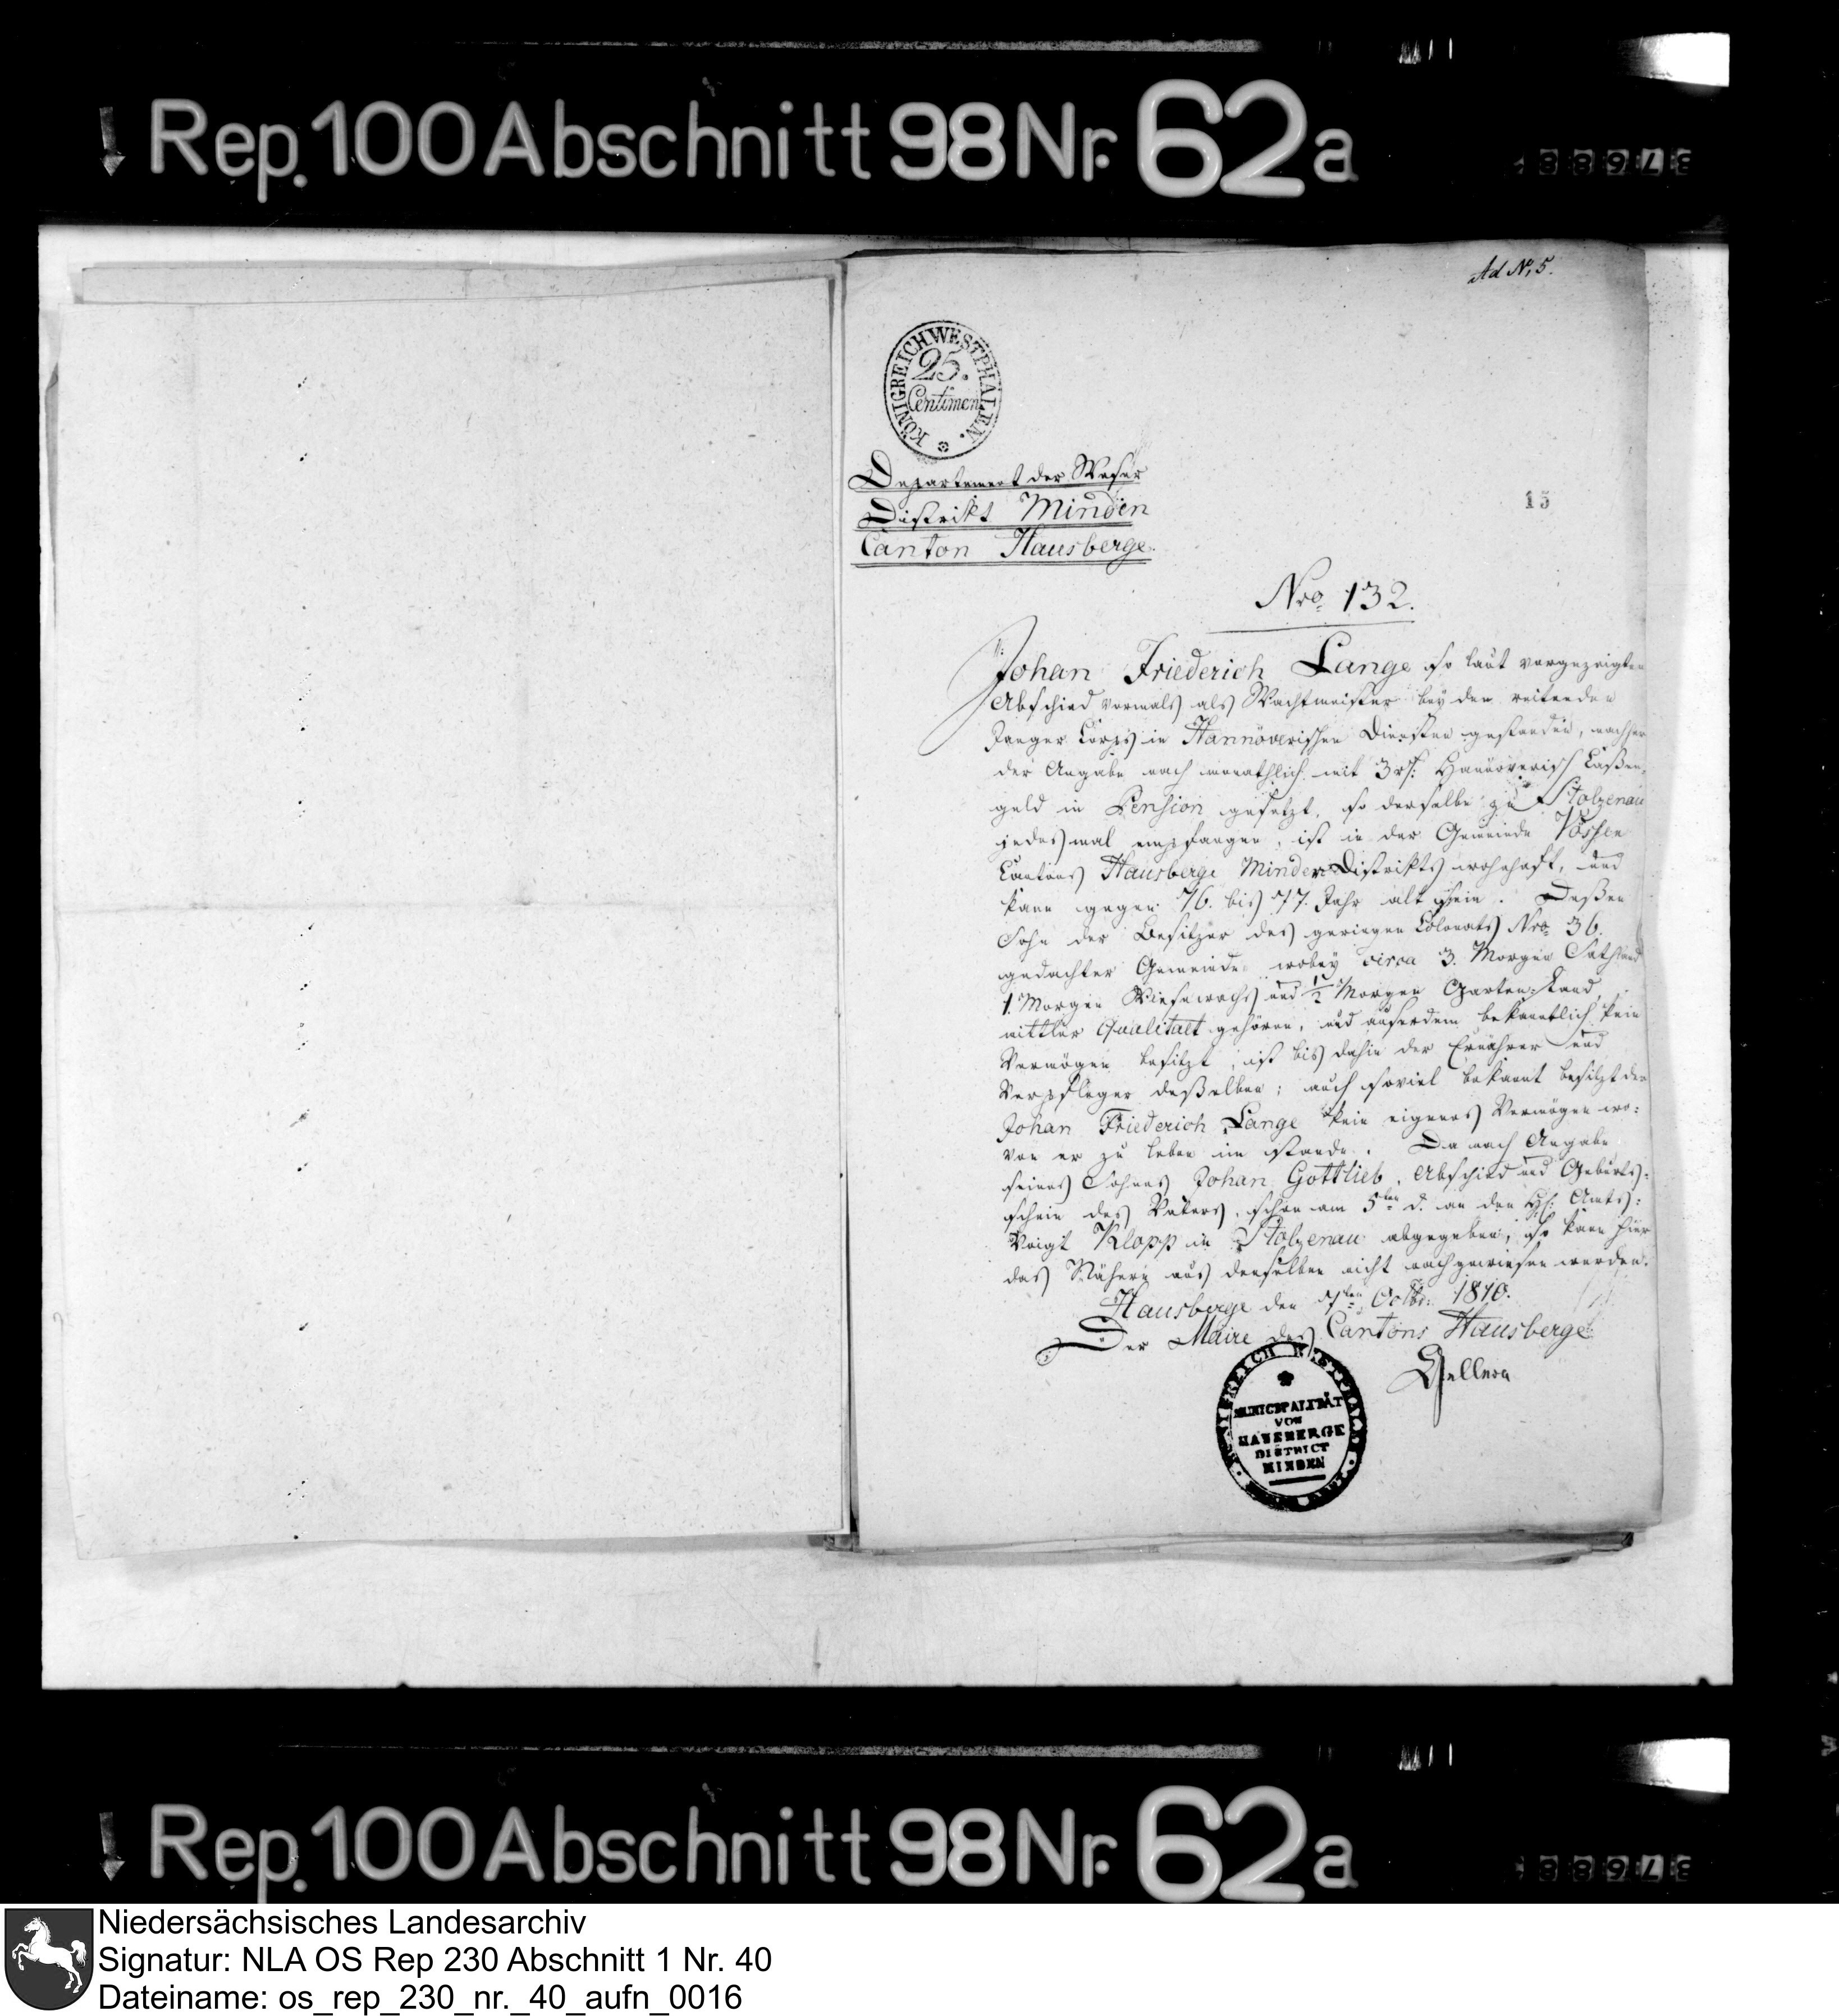 Rep. 100 Abschnitt 98 Nr. 62a
Ad N, 5.
KÖNIGREICH WESTPHALEN.
25.
Centimen
Departement der Weser
Distrikt Minden
Canton Hausberge.
15
Nro. 132.
Johan Friederich Lange so laut vorgezeigten
Abschied vormals als Wachtmeister bey den reitenden
Jaeger Corps in Hannöverischen Diensten gestanden, nachher
der Angabe nach monathlich mit 3 rt: Hannöverisch Caßen-
geld in Pension gesetzt, so derselbe zu Stolzenau
jedesmal empfangen, ist in der Gemeinde Vössen
Cantons Hausberge Minden Distrikts wohnhaft, und
kann gegen 76. bis 77. Jahr alt sein. Deßen
Sohn der Besitzer des geringen Colonats Nro. 36.
gedachter Gemeinde wobey circa 3. Morgen Sathland
1. Morgen Wiesewachs und 1/2 Morgen Garten-Land,
mittler Qualitaet gehören, und außerdem bekanntlich kein
Vermögen besitzt, ist bis dahin der Ernährer und
Verpfleger deßelben; auch soviel bekannt besitzt der
Johan Friederich Lange kein eigenes Vermögen wo:
von er zu leben im stande. Da nach Angabe
seines Sohnes Johan Gottlieb, Abschied und Geburts:
schein des Vaters, schon am 5ten d. an den H: Amts:
Voigt Klopp in Stolzenau abgegeben, so kann hier
das Nähere aus denselben nicht nachgewiesen werden.
Hausberge den 7ten Octbr. 1810.
Der Maire des Cantons Hausberge
MUNICIPALITÄT
VON
HAUSBERGE
DISTRICT
MINDEN
Rep. 100 Abschnitt 98 Nr. 62a
Niedersächsisches Landesarchiv
Signatur: NLA OS Rep 230 Abschnitt 1 Nr. 40
Dateiname: os_rep_230_nr._40_aufn_0016